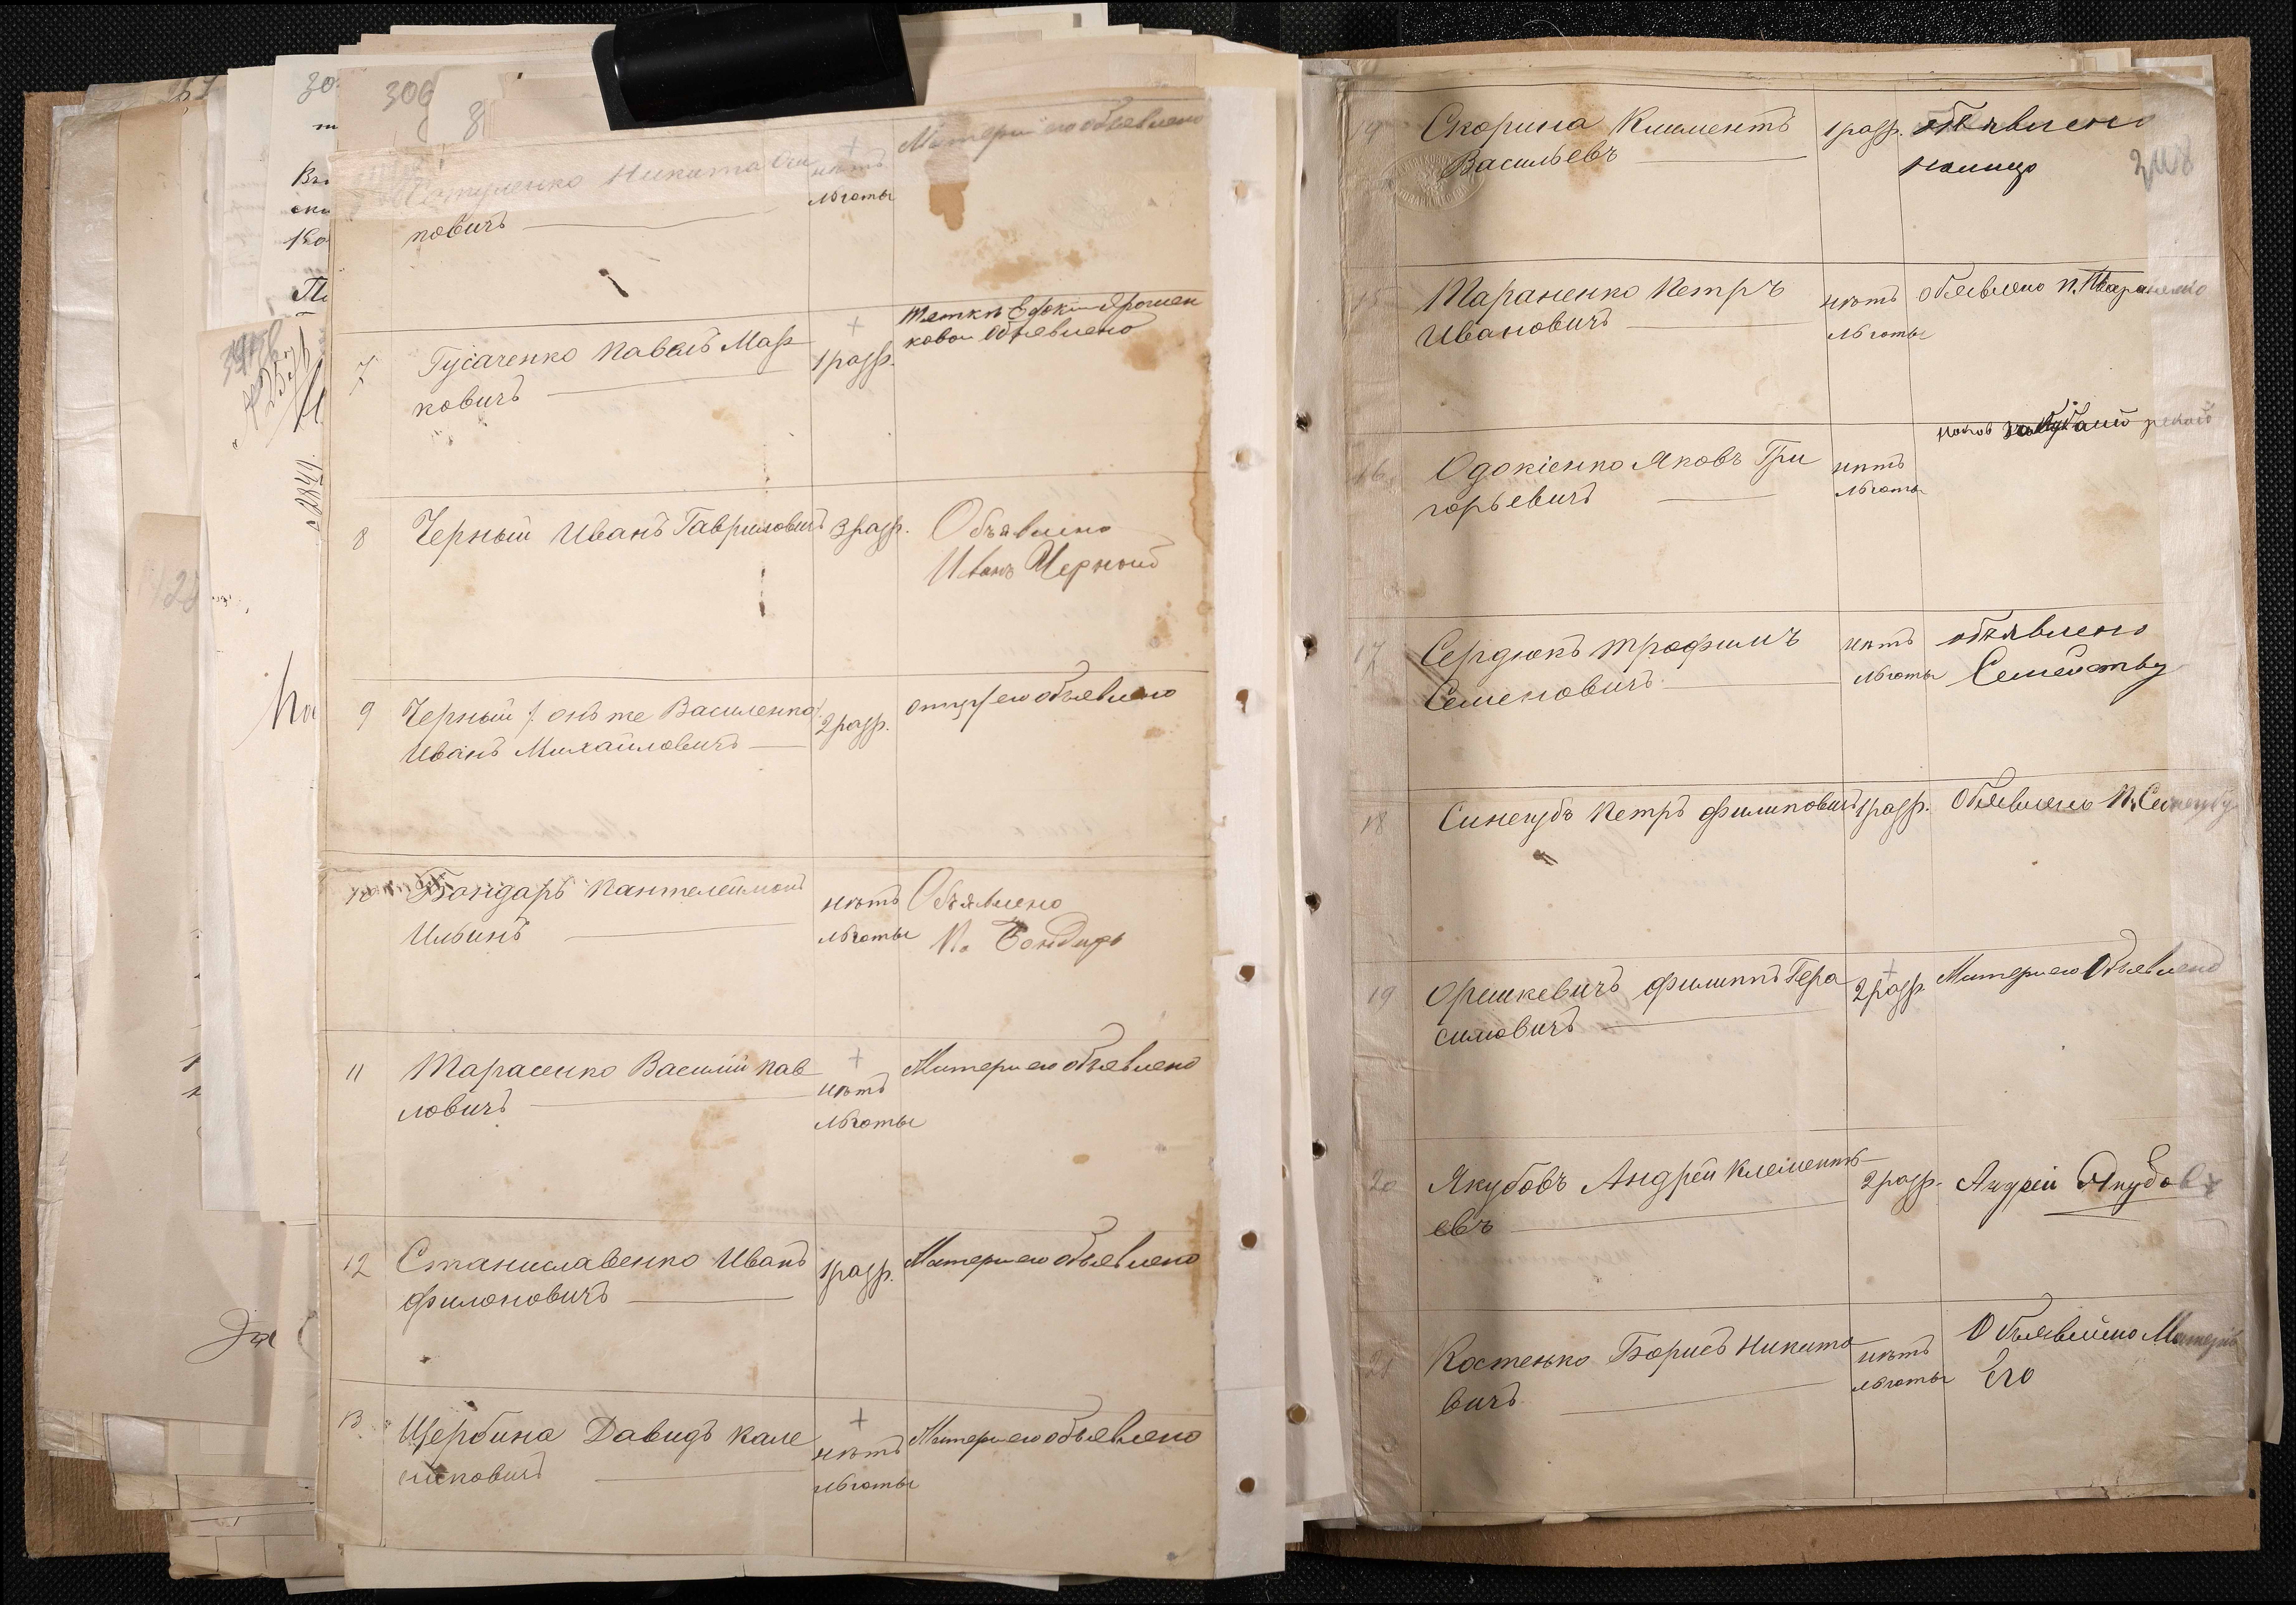 306
8
Никита Оси
повичъ
нѣтъ
льготы
Матери его объявлено
7
Гусаченко Павелъ Мар
ковичъ
1 разр.
Теткѣ Ярошен
ковой объявлено
8
Черный Иванъ Гавриловичъ
3 разр.
Объявлено
Иванъ Черной
9
Черный / онъ же Василенко /
Иванъ Михайловичъ
2 разр.
отцу его объявлено
10
Бондарь Пантелеймонъ
Ильинъ
нѣтъ
льготы
Объявлено
П. Бондарь
11
Тарасенко Василій Пав
ловичъ
нѣтъ
льготы
Матери его объявлено
12
Станиславенко Иванъ
Филоновичъ
1 разр.
Матери его объявлено
13
Щербина Давидъ Кале
никовичъ
нѣтъ
льготы
Матери его объявлено
14
Скорина Климентъ
Васильевъ
1 разр.
объявлено
248
15
Тараненко Петръ
Ивановичъ
нѣтъ
льготы
объявлено П. Тараненко
16
Одокіенко Яковъ Гри
горьевичъ
нѣтъ
льготы
17
Сердюкъ Трофимъ
Семеновичъ
нѣтъ
льготы
объявлено
Семейству
18
Синегубъ Петръ Филиповичъ
1 разр.
Объявлено П. Синегубу
19
Орешкевичъ Филиппъ Гера
симовичъ
2 разр.
Матери его Объявлено
20
Якубовъ Андрей Клементь
евъ
2 разр.
Андрей Якубовъ
21
Костенько Борисъ Никито
вичъ
нѣтъ
льготы
Объявлено Матери
Его